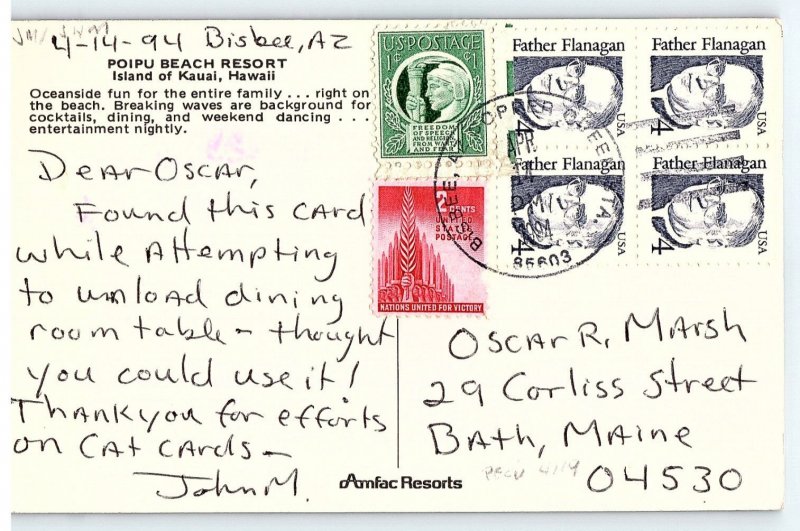 4-14-94 Bisbee, AZ
POIPU BEACH RESORT
Island of Kauai, Hawaii
Oceanside fun for the entire family . . . right on
the beach. Breaking waves are background for
cocktails, dining, and weekend dancing . . .
entertainment nightly.
Dear Oscar,
Found this card
while attempting
to unload dining
room table - thought
you could use it!
Thank you for efforts
on cat cards -
John M.
U.S. POSTAGE
1¢ ¢1
FREEDOM
OF SPEECH
AND RELIGION,
FROM WANT
AND FEAR
2 CENTS
UNITED
STATES
POSTAGE
NATIONS UNITED FOR VICTORY
Father Flanagan
4 USA
Father Flanagan
4 USA
Father Flanagan
4 USA
Father Flanagan
4 USA
COPPER QUEEN STA.
APR
14
PM
1994
85603
Oscar R. Marsh
29 Corliss Street
Bath, Maine
04530
Amfac Resorts